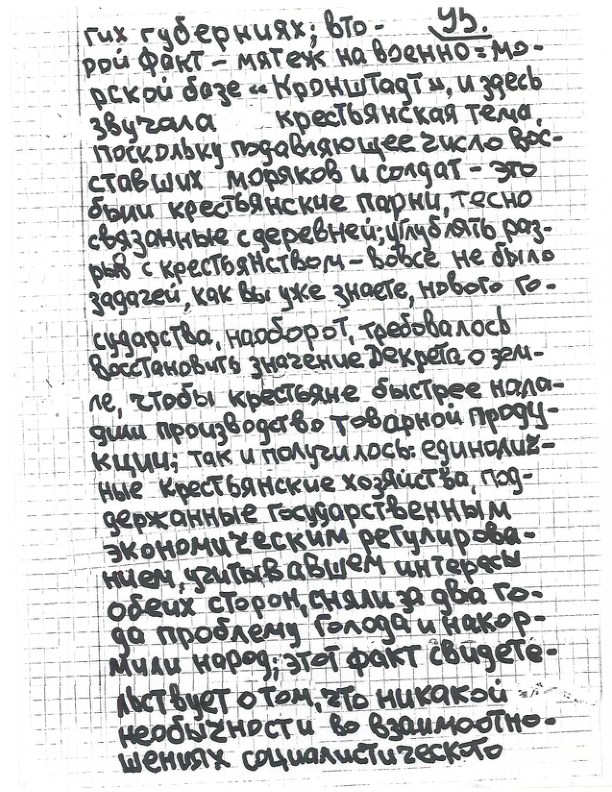 гих губерниях; вто- 95.
рой факт - мятеж на военно=мо-
рской базе «Кронштадт», и здесь
звучала крестьянская тема,
поскольку подавляющее число вос-
ставших моряков и солдат - это
были крестьянские парни, тесно
связанные с деревней; углублять раз-
рыв с крестьянством - вовсе не было
задачей, как вы уже знаете, нового го-
сударства, наоборот, требовалось
восстановить значение Декрета о зем-
ле, чтобы крестьяне быстрее нала-
дили производство товарной проду-
кции; так и получилось: единолич-
ные крестьянские хозяйства, под-
держанные государственным
экономическим регулирова-
нием, учитывавшем интересы
обеих сторон, сняли за два го-
да проблему голода и накор-
мили народ; этот факт свидете-
льствует о том, что никакой
необычности во взаимоотно-
шениях социалистического